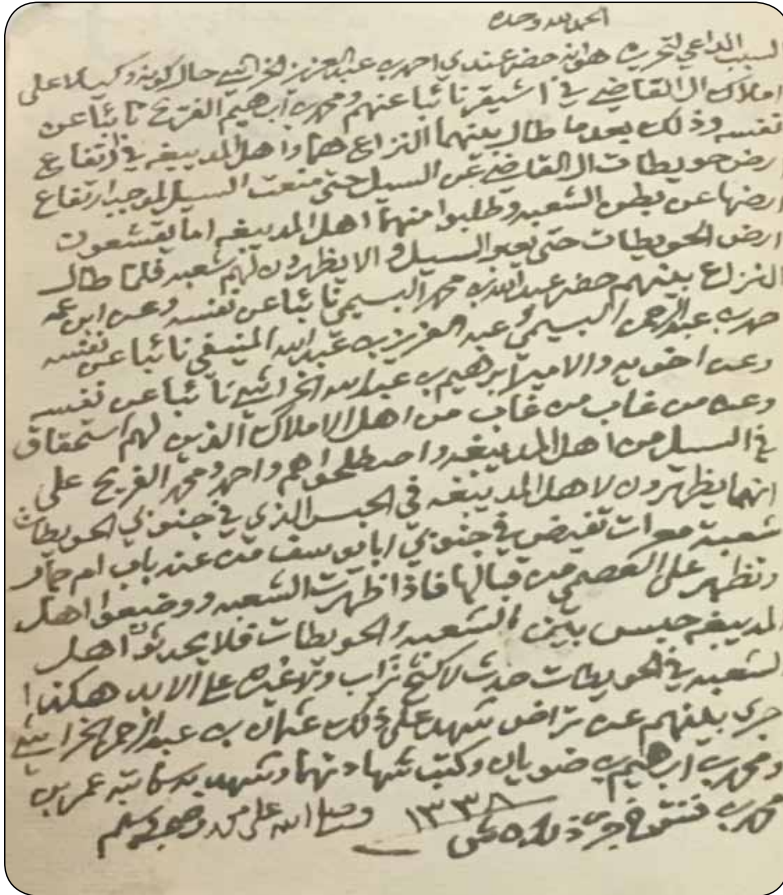 الحمد لله وحده
السبب الداعي لتحريره هو انه حضر عندي احمد بن عبد العزيز الخراشي حال كونه وكيلا على
املاك ال القاضي في اشيقر نائبا عنهم ومحمد بن ابراهيم الفريح نائبا عن
نفسه وذلك بعد ما طال بينهما النزاع هما واهل المديبغه في ارتفاع
ارض حويطات ال القاضي عن السيل حتى منعت السيل لموجب ارتفاع
ارضها عن بطن الشعبه وطلبوا منهما اهل المديبغه اما يقشعون
ارض الحويطات حتى يعبر السيل والا يظهرون لهم شعبه فلما طال
النزاع بينهم حضر عبد الله بن محمد البسيمي نائبا عن نفسه وعن ابن عمه
حمد بن عبد الرحمن البسيمي وعبد العزيز بن عبد الله المنيفي نائبا عن نفسه
وعن اخويه والامير ابراهيم بن عبد الله الخراشي نائبا عن نفسه
وعن من غاب من غاب من اهل الاملاك الذين لهم استحقاق
في السيل من اهل المديبغه واصطلحوا هم واحمد ومحمد الفريح على
انهما يظهرون لاهل المديبغه في الحبس الذي في جنوبي الحويطات
شعبة تفيض في جنوبي ابا يوسف من عند باب ام حمار
وتظهر على العصمي من قبالها فاذا ظهرت الشعبه ووضعوا اهل
المديبغه حبس بين الشعبه والحويطات فلا يحدثون اهل
الشعبه في الحويطات حدث لا كبح تراب ولا غيره على الابد هكذا
جرى بينهم عن تراض شهد على ذلك عثمان بن عبد الرحمن الخراشي
ومحمد بن ابراهيم بن ضويان وكتب شهادتهما وشهد به كاتبه عمر بن
محمد بن فنتوخ جرى ذلك في ١٣٣٨ وصلى الله على محمد وصحبه وسلم